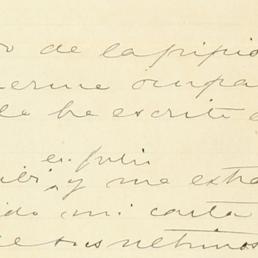 o de la pipio
erme ocupa
le he escrito
en julio
ibi y me extra
ido mi carta
e sus ultimos